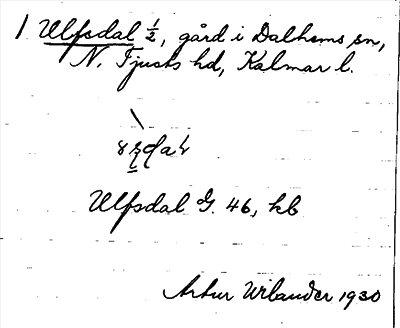 1 Ulfsdal 1/2, gård i Dalhems sn,
N. Tjusts hd, Kalmar l.
Ulfsdal G. 46, kb
Artur Wilander 1930